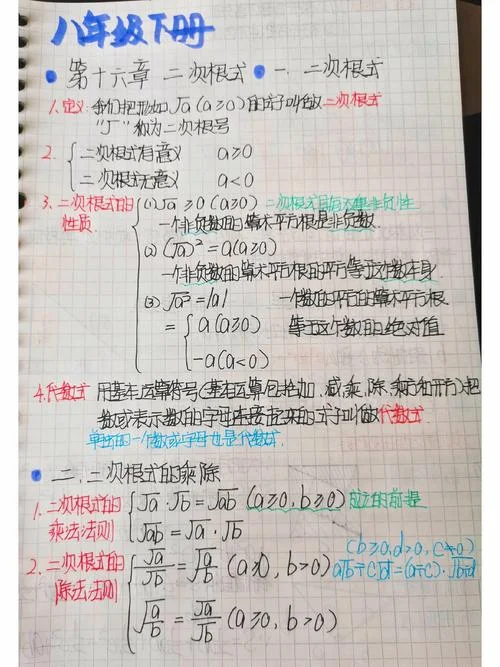 八年级下册
第十六章 二次根式 一、二次根式
1.定义:我们把形如√a(a≥0)的式子叫做二次根式
"√"称为二次根号
2. { 二次根式有意义 a≥0
二次根式无意义 a<0
3.二次根式的性质. { (1)√a≥0(a≥0) 二次根式具有双重非负性
一个非负数的算术平方根是非负数.
(2)(√a)²=a(a≥0)
一个非负数的算术平方根的平方等于这个数本身.
(3)√a²=|a| 一个数的平方的算术平方根
= { a(a≥0) 等于这个数的绝对值
-a(a<0)
4.代数式 用基本运算符号(基本运算包括加、减、乘、除、乘方和开方)把
数或表示数的字母连接起来的式子叫做代数式.
单独的一个数或字母也是代数式.
二、二次根式的乘除
1.二次根式的乘法法则 { √a·√b=√ab(a≥0,b≥0)成立的前提
√ab=√a·√b
2.二次根式的除法法则 { √a/√b=√(a/b)(a≥0,b>0)
(b≥0,d>0,c≠0)
a√b÷c√d=(a÷c)·√(b÷d)
√(a/b)=√a/√b(a≥0,b>0)